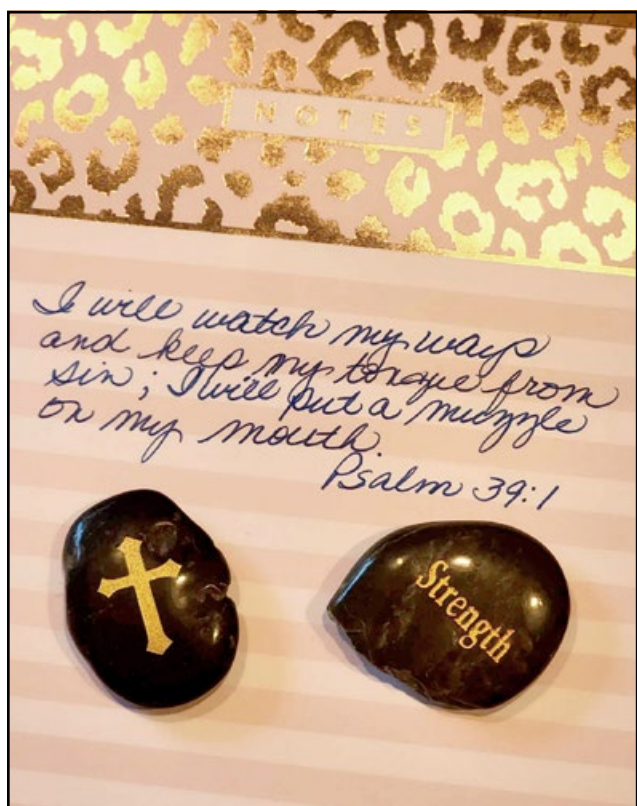 NOTES
I will watch my ways
and keep my tongue from
sin; I will put a muzzle
on my mouth.
Psalm 39:1
Strength